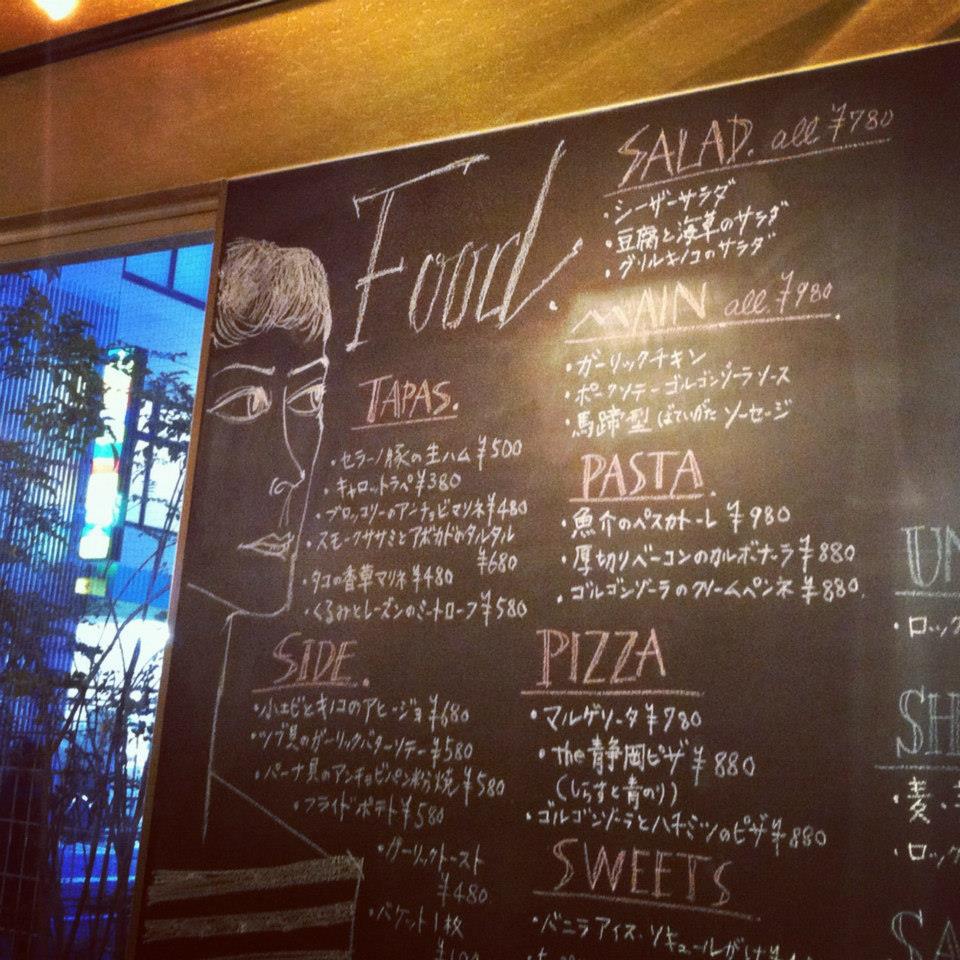 Food.
SALAD. all ¥780
・シーザーサラダ
・豆腐と海草のサラダ
・グリルキノコのサラダ
MAIN all. ¥980.
・ガーリックチキン
・ポークソテーゴルゴンゾーラソース
・馬蹄型 ばていがた ソーセージ
TAPAS.
・セラーノ豚の生ハム ¥500
・キャロットラペ ¥380
・ブロッコリーのアンチョビマリネ ¥480
・スモークササミとアボカドのタルタル
¥680
・タコの香草マリネ ¥480
・くるみとレーズンのミートローフ ¥580
PASTA.
・魚介のペスカトーレ ¥980
・厚切りベーコンのカルボナーラ ¥880
・ゴルゴンゾーラのクリームペンネ ¥880.
SIDE.
・小エビとキノコのアヒージョ ¥680
・ツブ貝のガーリックバターソテー ¥580
・パーナ貝のアンチョビパン粉焼 ¥580
・フライドポテト ¥580
・ガーリックトースト
¥480
・バゲット1枚
PIZZA
・マルゲリータ ¥780
・the 青静岡ピザ ¥880
(しらすと青のり)
・ゴルゴンゾーラとハチミツのピザ ¥880
SWEETS
・バニラアイス・リキュールがけ
UN
・ロック
SH
・麦、
・ロック
SA